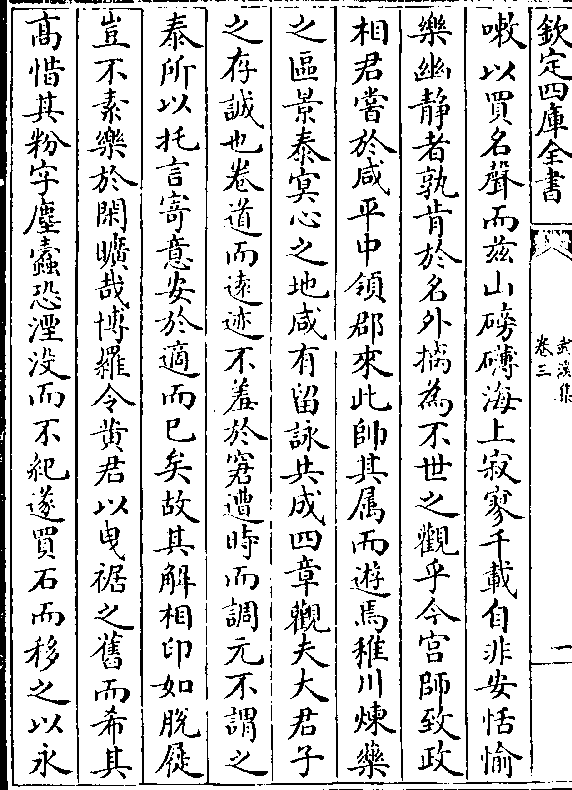 欽定四庫全書
武溪集
卷三
一
嗽以買名聲而兹山磅礴海上寂寥千載自非安恬愉
樂幽静者孰肯於名外摛為不世之觀乎今宫師致政
相君嘗於咸平中領郡來此帥其属而遊焉稚川煉藥
之區景泰冥心之地咸有留詠共成四章觀夫大君子
之存誠也卷道而逺迹不羞於窘遭時而調元不謂之
泰所以托言寄意安於適而已矣故其解相印如脫屣
豈不素樂於閑曠哉博羅令黄君以曳裾之舊而希其
髙惜其粉字塵蠧恐湮没而不紀遂買石而移之以永